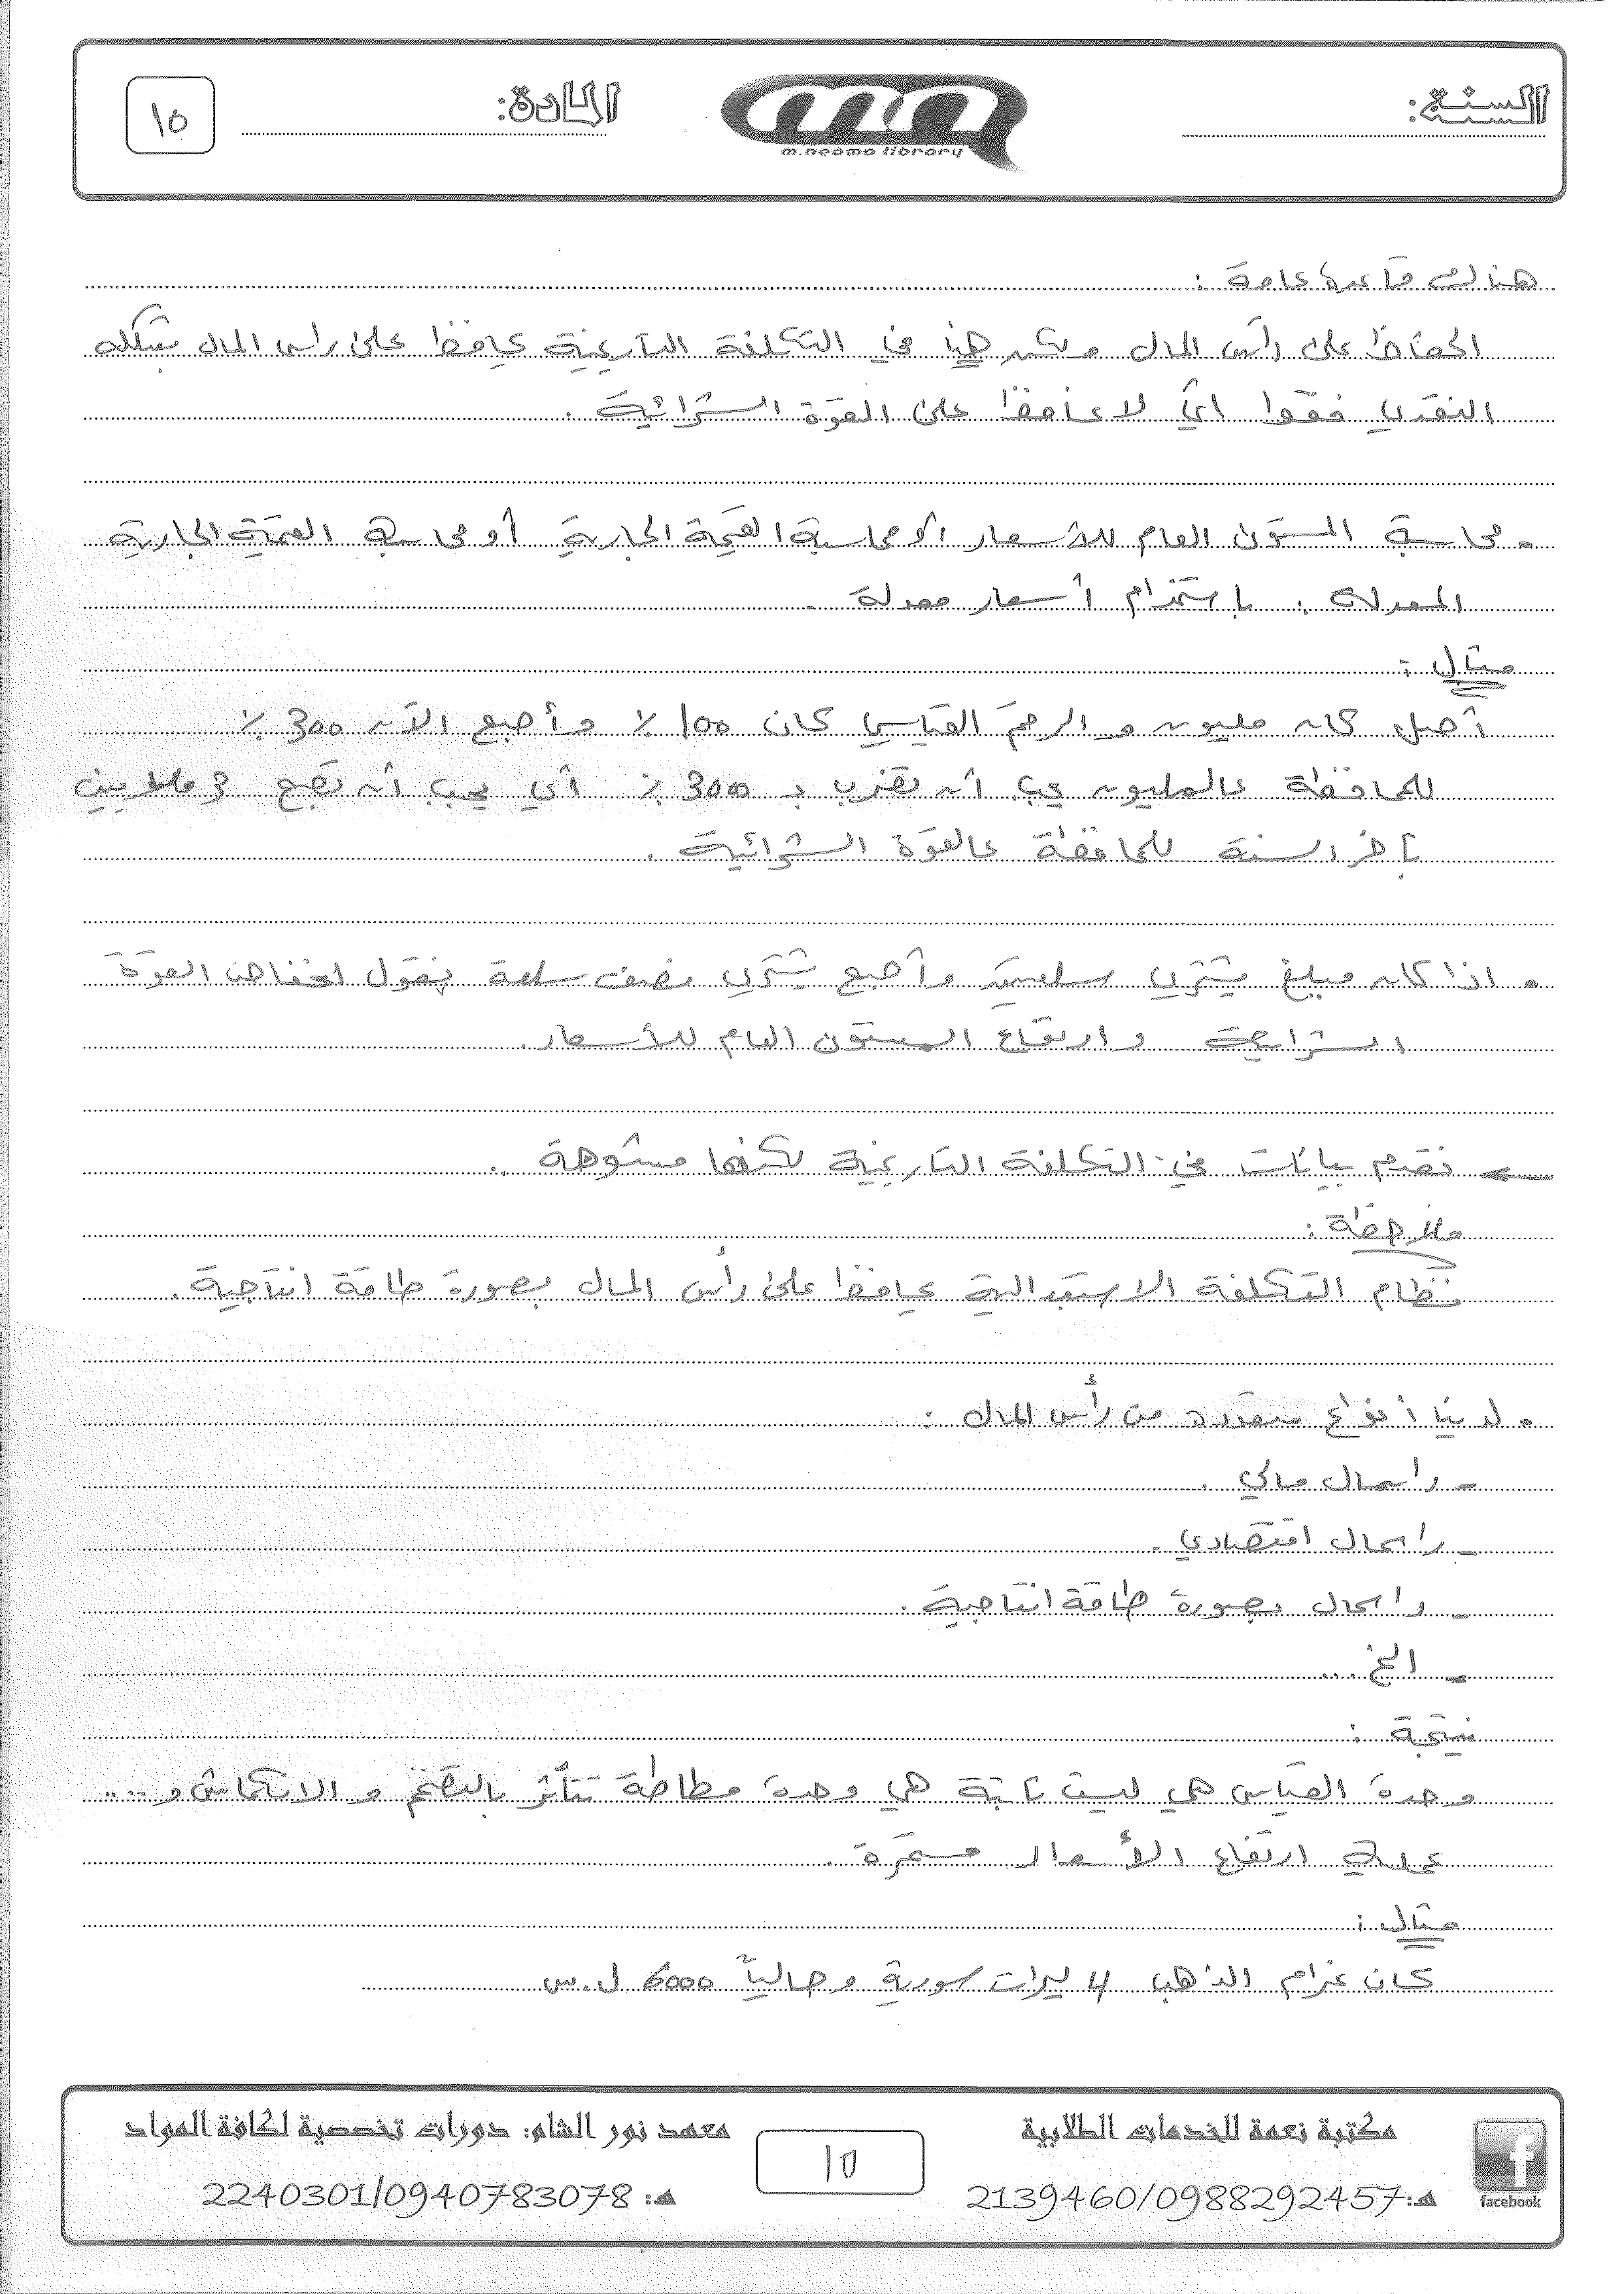 السنة:
المادة:
١٥
m.neama library
هناك قاعدة عامة :
الحفاظ على رأس المال ولكن هنا في التكلفة التاريخية يحافظ على رأس المال بشكله
النقدي فقط أي لا يحافظ على القوة الشرائية .
• محاسبة المستوى العام للأسعار أو محاسبة القيمة الجارية أو محاسبة القيمة الجارية
المعدلة : باستخدام أسعار معدلة .
مثال :
أصل كان مليون و الرقم القياسي كان 100 % و أصبح الآن 300 %
للمحافظة عالمليون يجب أن تضرب بـ 300 % أي يجب أن تصبح 3 ملايين
بآخر السنة للمحافظة عالقوة الشرائية .
• اذا كان مبلغ يشتري سلعتين وأصبح يشتري نصف سلعة نقول انخفاض القوة
الشرائية وارتفاع المستوى العام للأسعار .
← نقدم بيانات في التكلفة التاريخية لكنها مشوهة ..
ملاحظة :
نظام التكلفة الاستبدالية يحافظ على رأس المال بصورة طاقة انتاجية .
• لدينا أنواع متعددة من رأس المال :
- راسمال مالي .
- راسمال اقتصادي .
- راسمال بصورة طاقة انتاجية .
- الخ ...
نتيجة :
وحدة القياس هي ليست ثابتة هي وحدة مطاطة تتأثر بالتضخم و الانكماش و ....
عملية ارتفاع الأسعار مستمرة .
مثال :
كان غرام الذهب 4 ليرات سورية وحالياً 6000 ل.س
مكتبة نعمة للخدمات الطلابية
هـ: 2139460/0988292457
facebook
١٥
معهد نور الشام: دورات تخصصية لكافة المواد
هـ: 2240301/0940783078